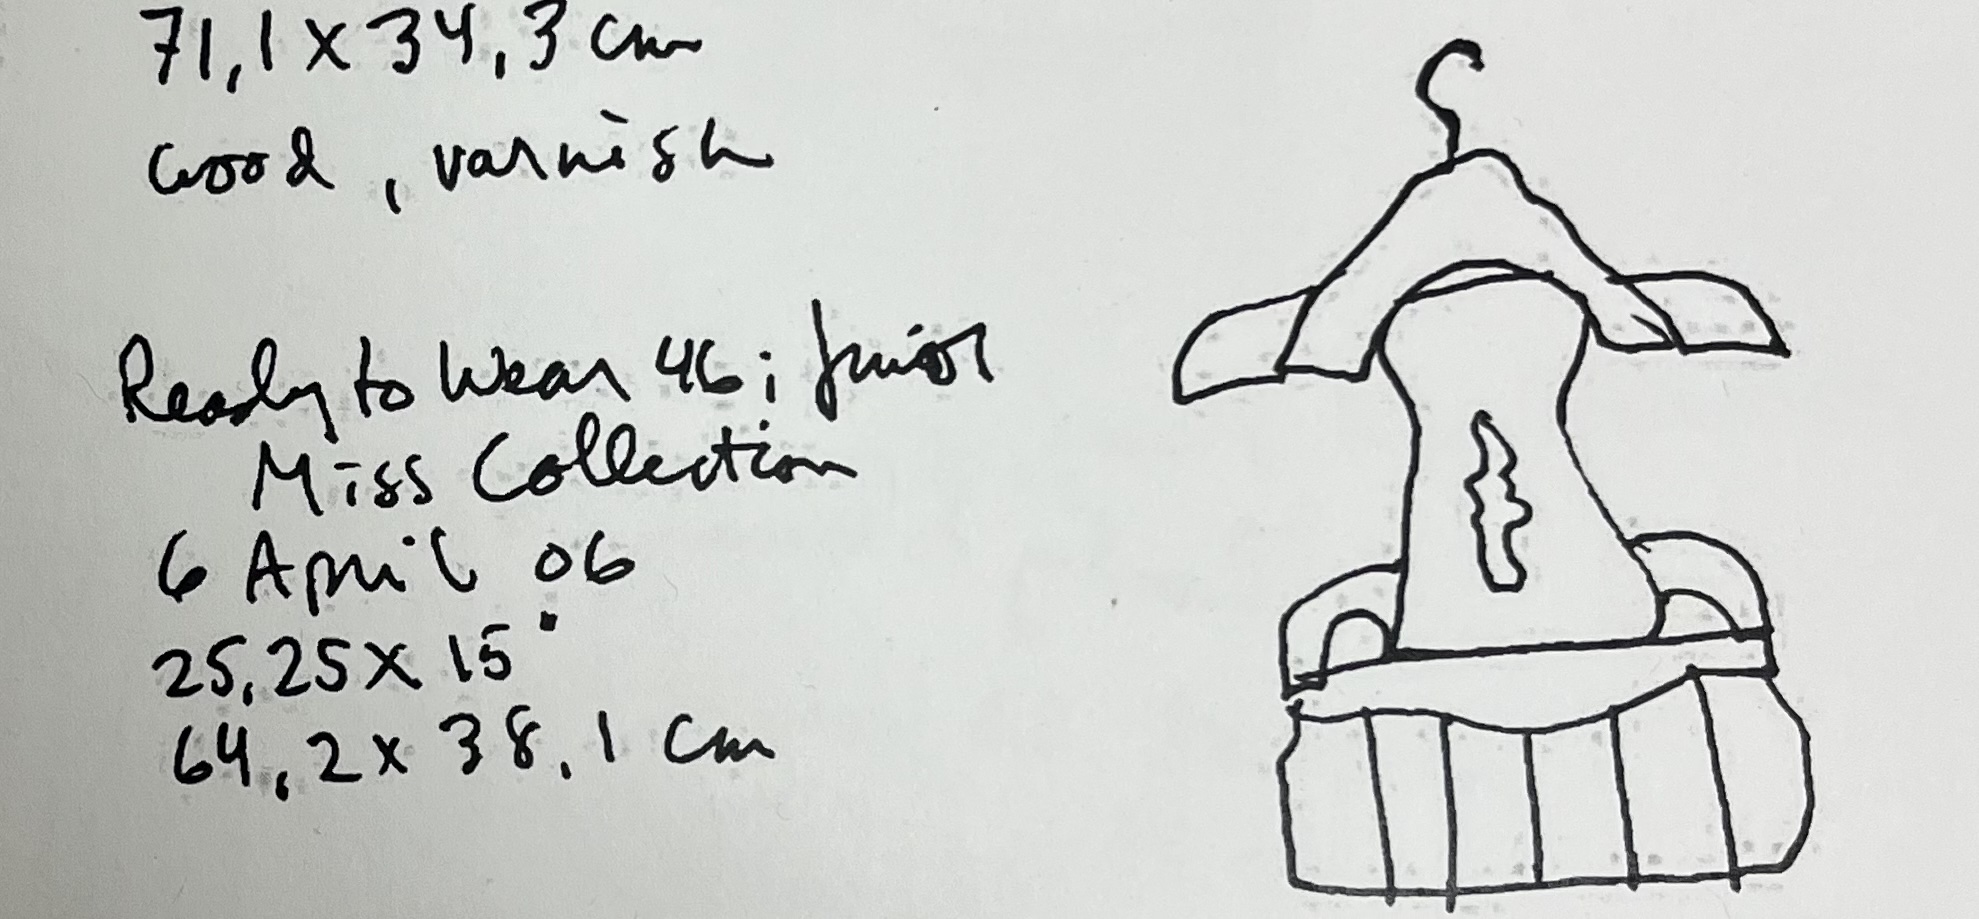 71,1 x 34,3 cm
wood, varnish
Ready to Wear 46; Junior
Miss Collection
6 April 06
25,25 x 15"
64,2 x 38,1 cm